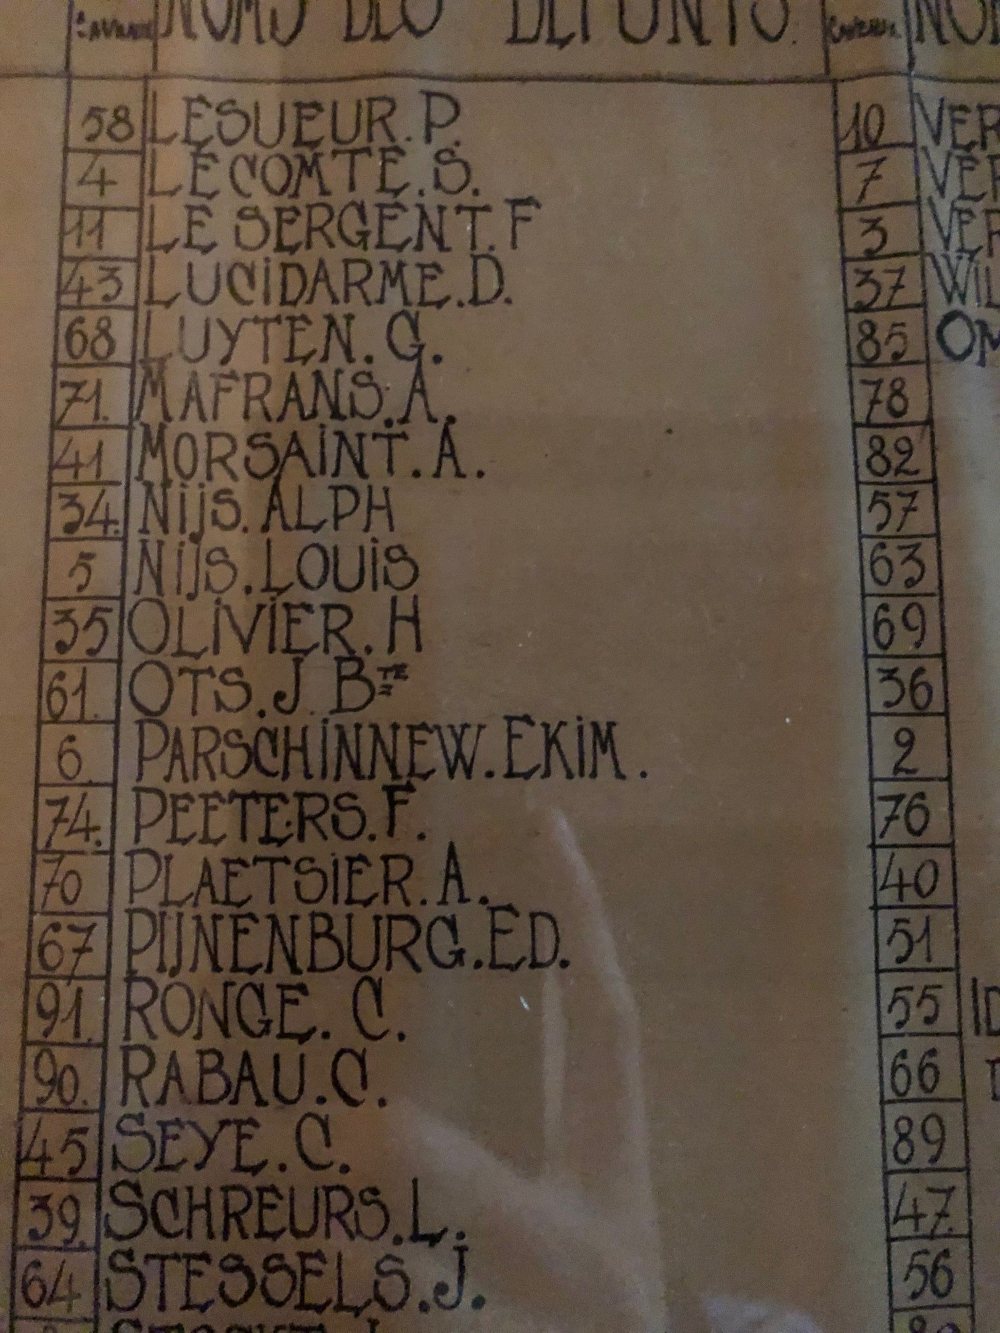 CAVEAUX NOMS DES DEFUNTS. CAVEAUX
58 LESUEUR.P. 10 VER
4 LECOMTE.S. 7 VER
11 LE SERGENT.F 3 VER
43 LUCIDARME.D. 37 WIL
68 LUYTEN.G. 85 OM
71. MAFRANS.A. 78
41 MORSAINT.A. 82
34. Nijs.ALPH 57
5 NIJS.LOUIS 63
35 OLIVIER.H 69
61. OTS.J.BTE 36
6. PARSCHINNEW.EKIM. 2
74. PEETERS.F. 76
70 PLAETSIER.A. 40
67 PIJNENBURG.ED. 51
91. RONGE.C. 55
90. RABAU.C. 66
45 SEYE.C. 89
39. SCHREURS.L. 47.
64 STESSELS.J. 56